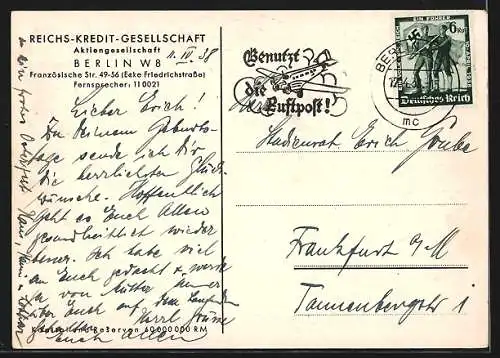 REICHS-KREDIT-GESELLSCHAFT
Aktiengesellschaft
BERLIN W8
Französische Str. 49-56 (Ecke Friedrichstraße)
Fernsprecher: 11 0021
11. III. 38
Lieber Erich!
Zu Deinem Geburts-
tage sende ich Dir
die herzlichsten Glück-
wünsche. Hoffentlich
geht es Euch Allen
gesundheitlich wieder
besser. Ich habe viel
an Euch gedacht &
ja von Mutter
über Euch auf dem Laufenden
Herzl. Grüsse
Euch Allen
Kapital und Reserven 60 000 000 RM
Benutzt
die
Luftpost!
BERLIN
mc
6
Deutsches Reich
Studienrat Erich
Frankfurt a/M
Tannenbergstr 1